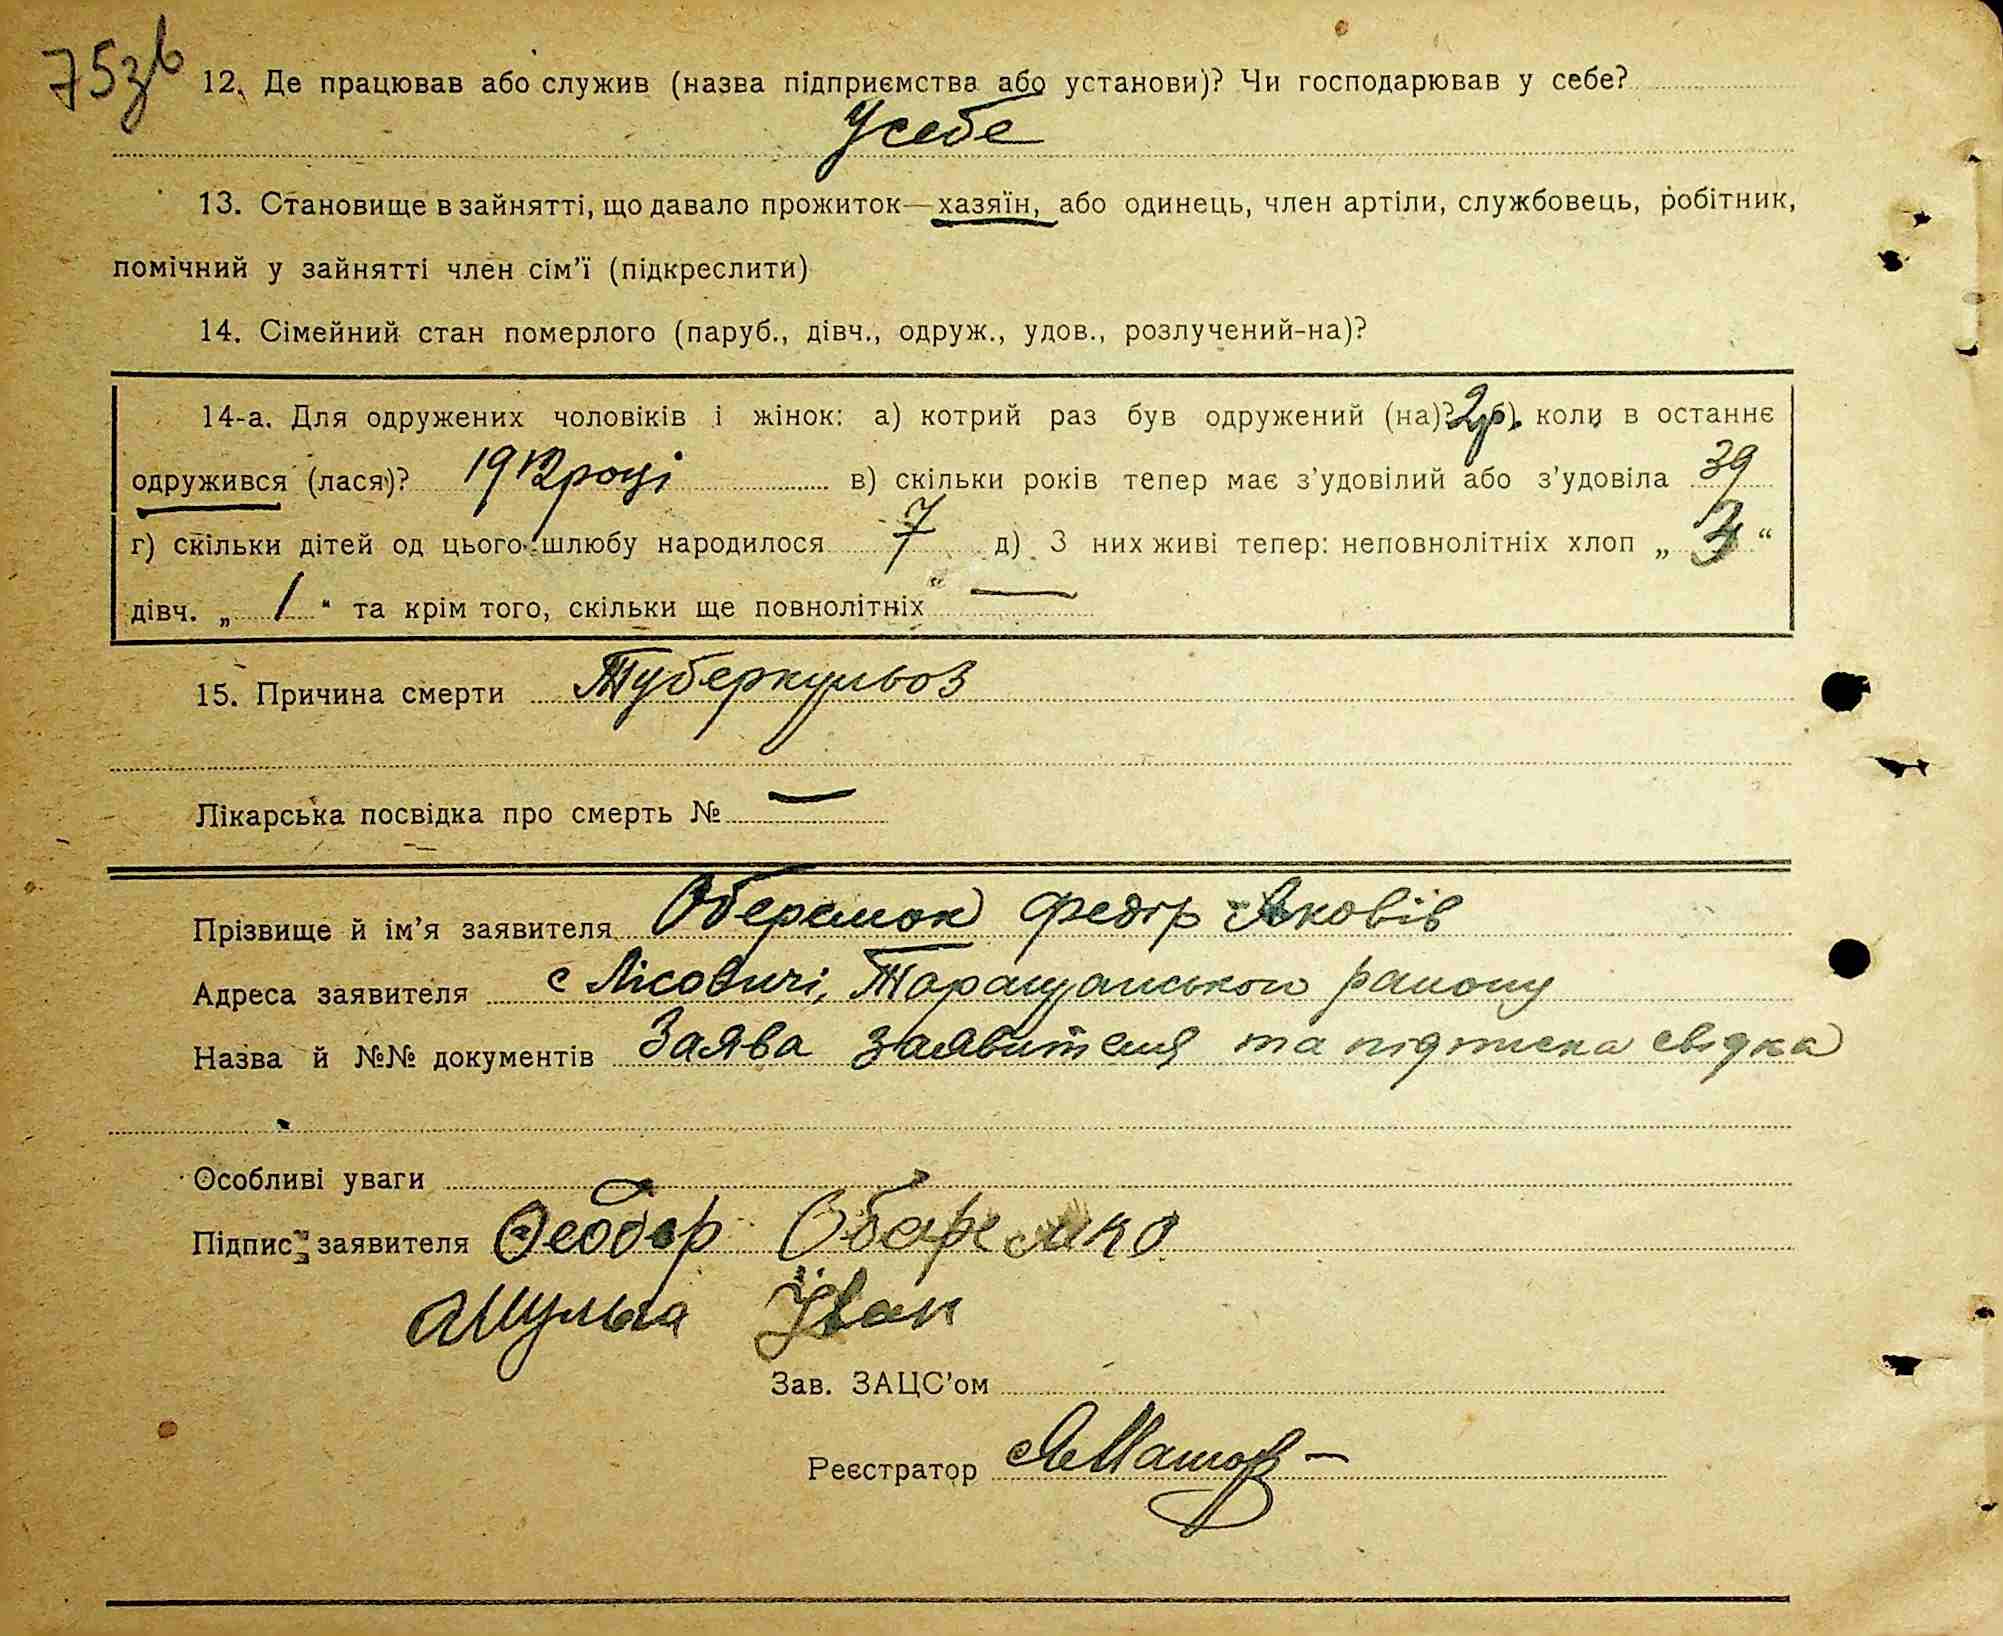 75зв
12. Де працював або служив (назва підприємства або установи)? Чи господарював у себе?
Усебе
13. Становище в зайнятті, що давало прожиток—хазяїн, або одинець, член артіли, службовець, робітник,
помічний у зайнятті член сім’ї (підкреслити)
14. Сімейний стан померлого (паруб., дівч., одруж., удов., розлучений-на)?
14-а. Для одружених чоловіків і жінок: а) котрий раз був одружений (на)? 2 б) коли в останнє
одружився (лася)? 1912 році в) скільки років тепер має з’удовілий або з’удовіла 39
г) скільки дітей од цього шлюбу народилося 7 д) З них живі тепер: неповнолітніх хлоп „ 3 “
дівч. „ 1 “ та крім того, скільки ще повнолітніх —
15. Причина смерти Туберкульоз
Лікарська посвідка про смерть № —
Прізвище й ім’я заявителя Оберемок Федір Яковів
Адреса заявителя с Лісовичі, Таращанського району
Назва й №№ документів Заява заявителя та підписка свідка
Особливі уваги
Підпис заявителя Феодор Обаремко
Шульга Іван
Зав. ЗАЦС’ом
Реєстратор